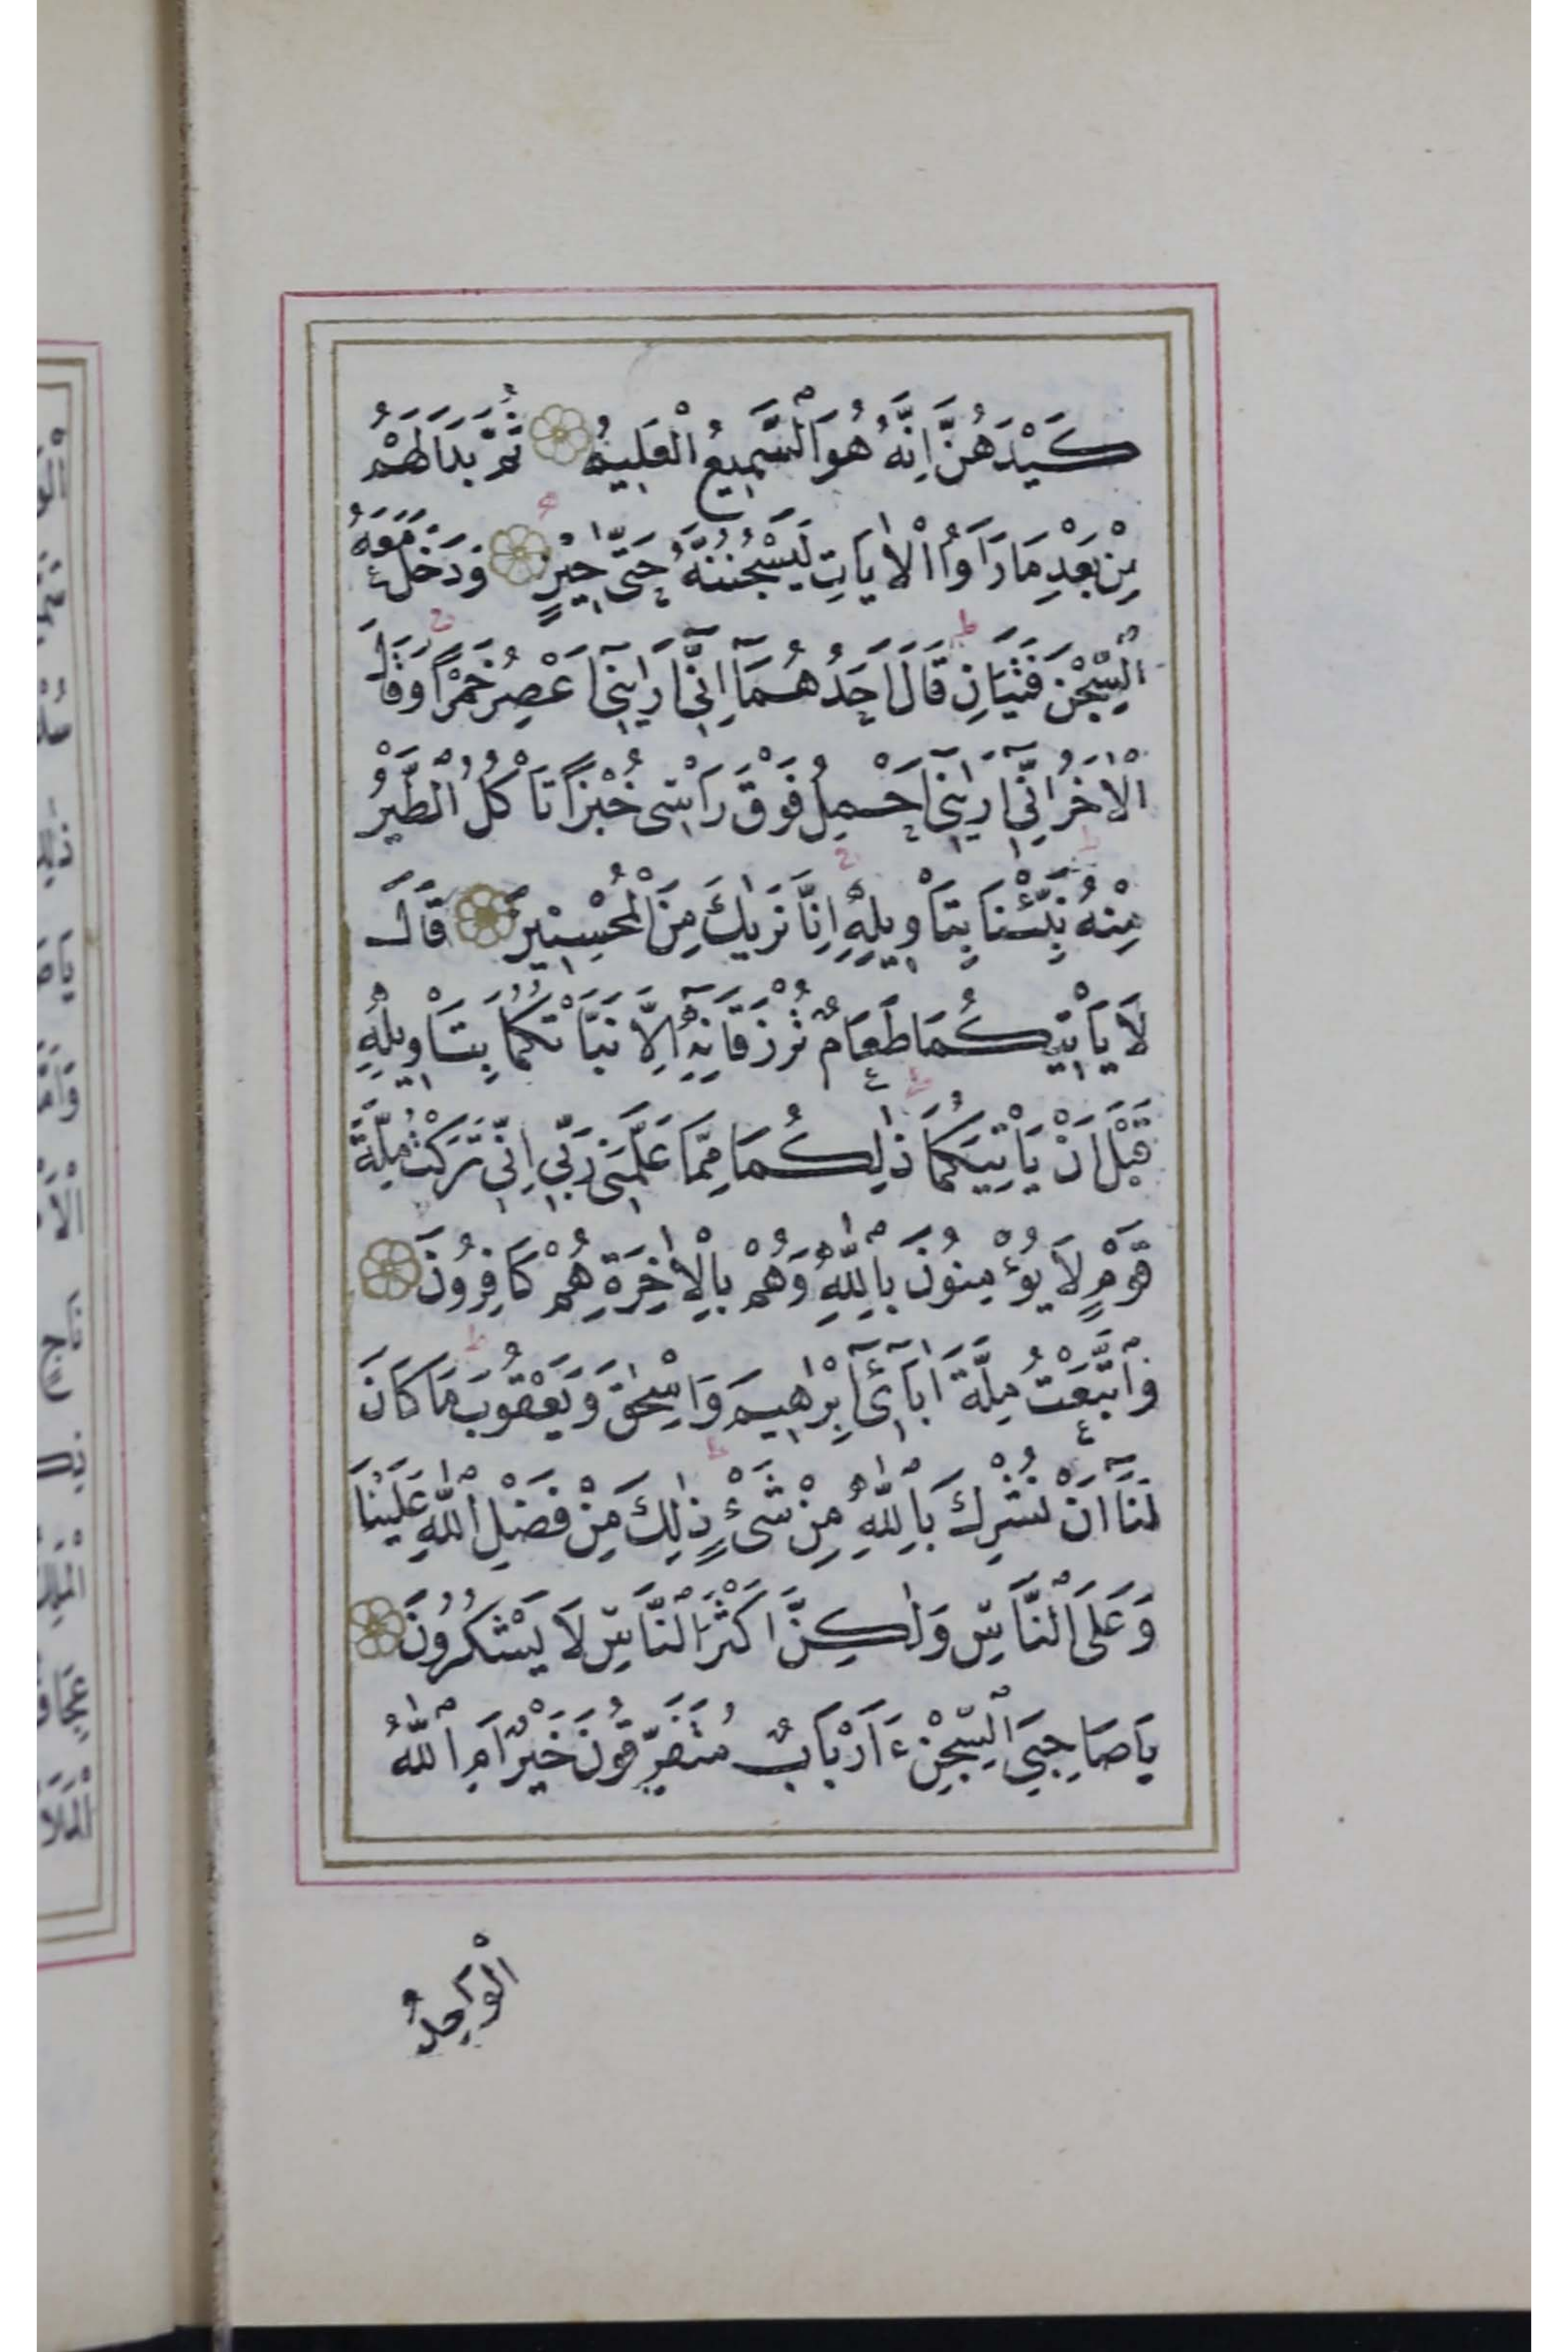 كَيْدَهُنَّ اِنَّهُ هُوَ السَّمِيعُ الْعَلِيمُ ثُمَّ بَدَا لَهُمْ
مِنْ بَعْدِ مَا رَاَوُا الْاٰيَاتِ لَيَسْجُنُنَّهُ حَتّٰى حِينٍ وَدَخَلَ مَعَهُ
السِّجْنَ فَتَيَانِ قَالَ اَحَدُهُمَٓا اِنّٓي اَرٰينٓي اَعْصِرُ خَمْرًا وَقَالَ
الْاٰخَرُ اِنّٓي اَرٰينٓي اَحْمِلُ فَوْقَ رَاْسي خُبْزًا تَاْكُلُ الطَّيْرُ
مِنْهُ نَبِّئْنَا بِتَاْويلِهِ اِنَّا نَرٰيكَ مِنَ الْمُحْسِنينَ قَالَ
لَا يَاْتيكُمَا طَعَامٌ تُرْزَقَانِهٓ اِلَّا نَبَّاْتُكُمَا بِتَاْويلِهِ
قَبْلَ اَنْ يَاْتِيَكُمَا ذٰلِكُمَا مِمَّا عَلَّمَني رَبّي اِنّي تَرَكْتُ مِلَّةَ
قَوْمٍ لَا يُؤْمِنُونَ بِاللّٰهِ وَهُمْ بِالْاٰخِرَةِ هُمْ كَافِرُونَ
وَاتَّبَعْتُ مِلَّةَ اٰبَٓاءٓي اِبْرٰهيمَ وَاِسْحٰقَ وَيَعْقُوبَ مَا كَانَ
لَنَٓا اَنْ نُشْرِكَ بِاللّٰهِ مِنْ شَيْءٍ ذٰلِكَ مِنْ فَضْلِ اللّٰهِ عَلَيْنَا
وَعَلَى النَّاسِ وَلٰكِنَّ اَكْثَرَ النَّاسِ لَا يَشْكُرُونَ
يَا صَاحِبَيِ السِّجْنِ ءَاَرْبَابٌ مُتَفَرِّقُونَ خَيْرٌ اَمِ اللّٰهُ
الْوَاحِدُ